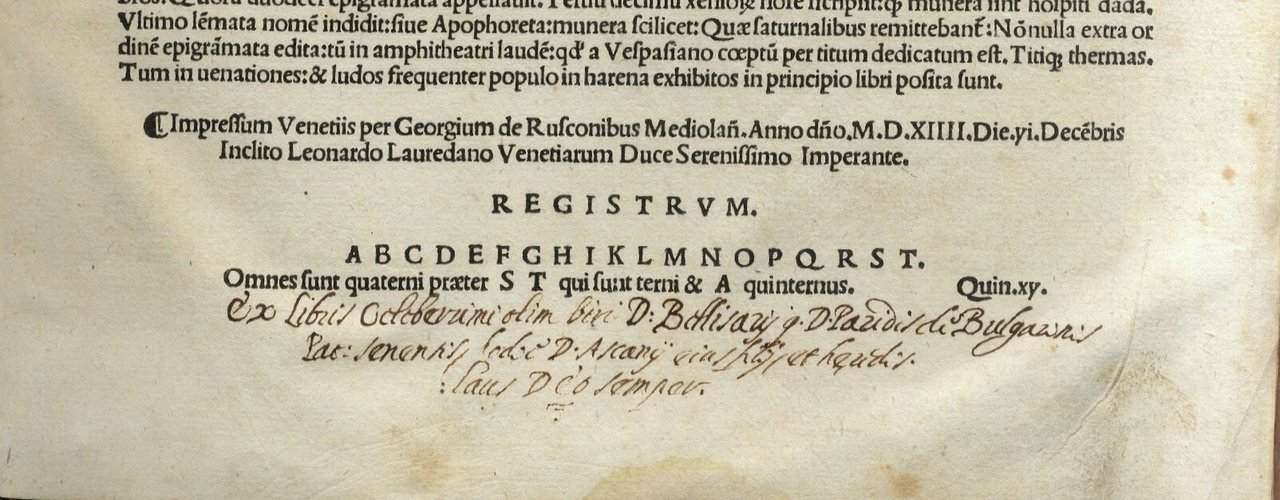 duodeci epigrãmata appellauit.
Vltimo lẽmata nomẽ indidit:siue Apophoreta:munera scilicet:Quæ saturnalibus remittebant᷑:Nõ nulla extra or
dinẽ epigrãmata edita:tũ in amphitheatri laudẽ:qđ a Vespasiano cœptũ per titum dedicatum est.Titiqꝫ thermas.
Tum in uenationes:& ludos frequenter populo in harena exhibitos in principio libri posita sunt.
⸿Impressum Venetiis per Georgium de Rusconibus Mediolañ.Anno dño.M.D.XIIII.Die.yi.Decẽbris
Inclito Leonardo Lauredano Venetiarum Duce Serenissimo Imperante.
REGISTRVM.
A B C D E F G H I K L M N O P Q R S T.
Omnes sunt quaterni præter S T qui sunt terni & A quinternus. Quin.xy.
Ex Libris Celeberrimi olim viri D: Bellisarij q. D. Paridis de Bulgarinis
Pat: Senensis, hodie D. Ascanij eius filij et heredis.
:Laus Deo semper.